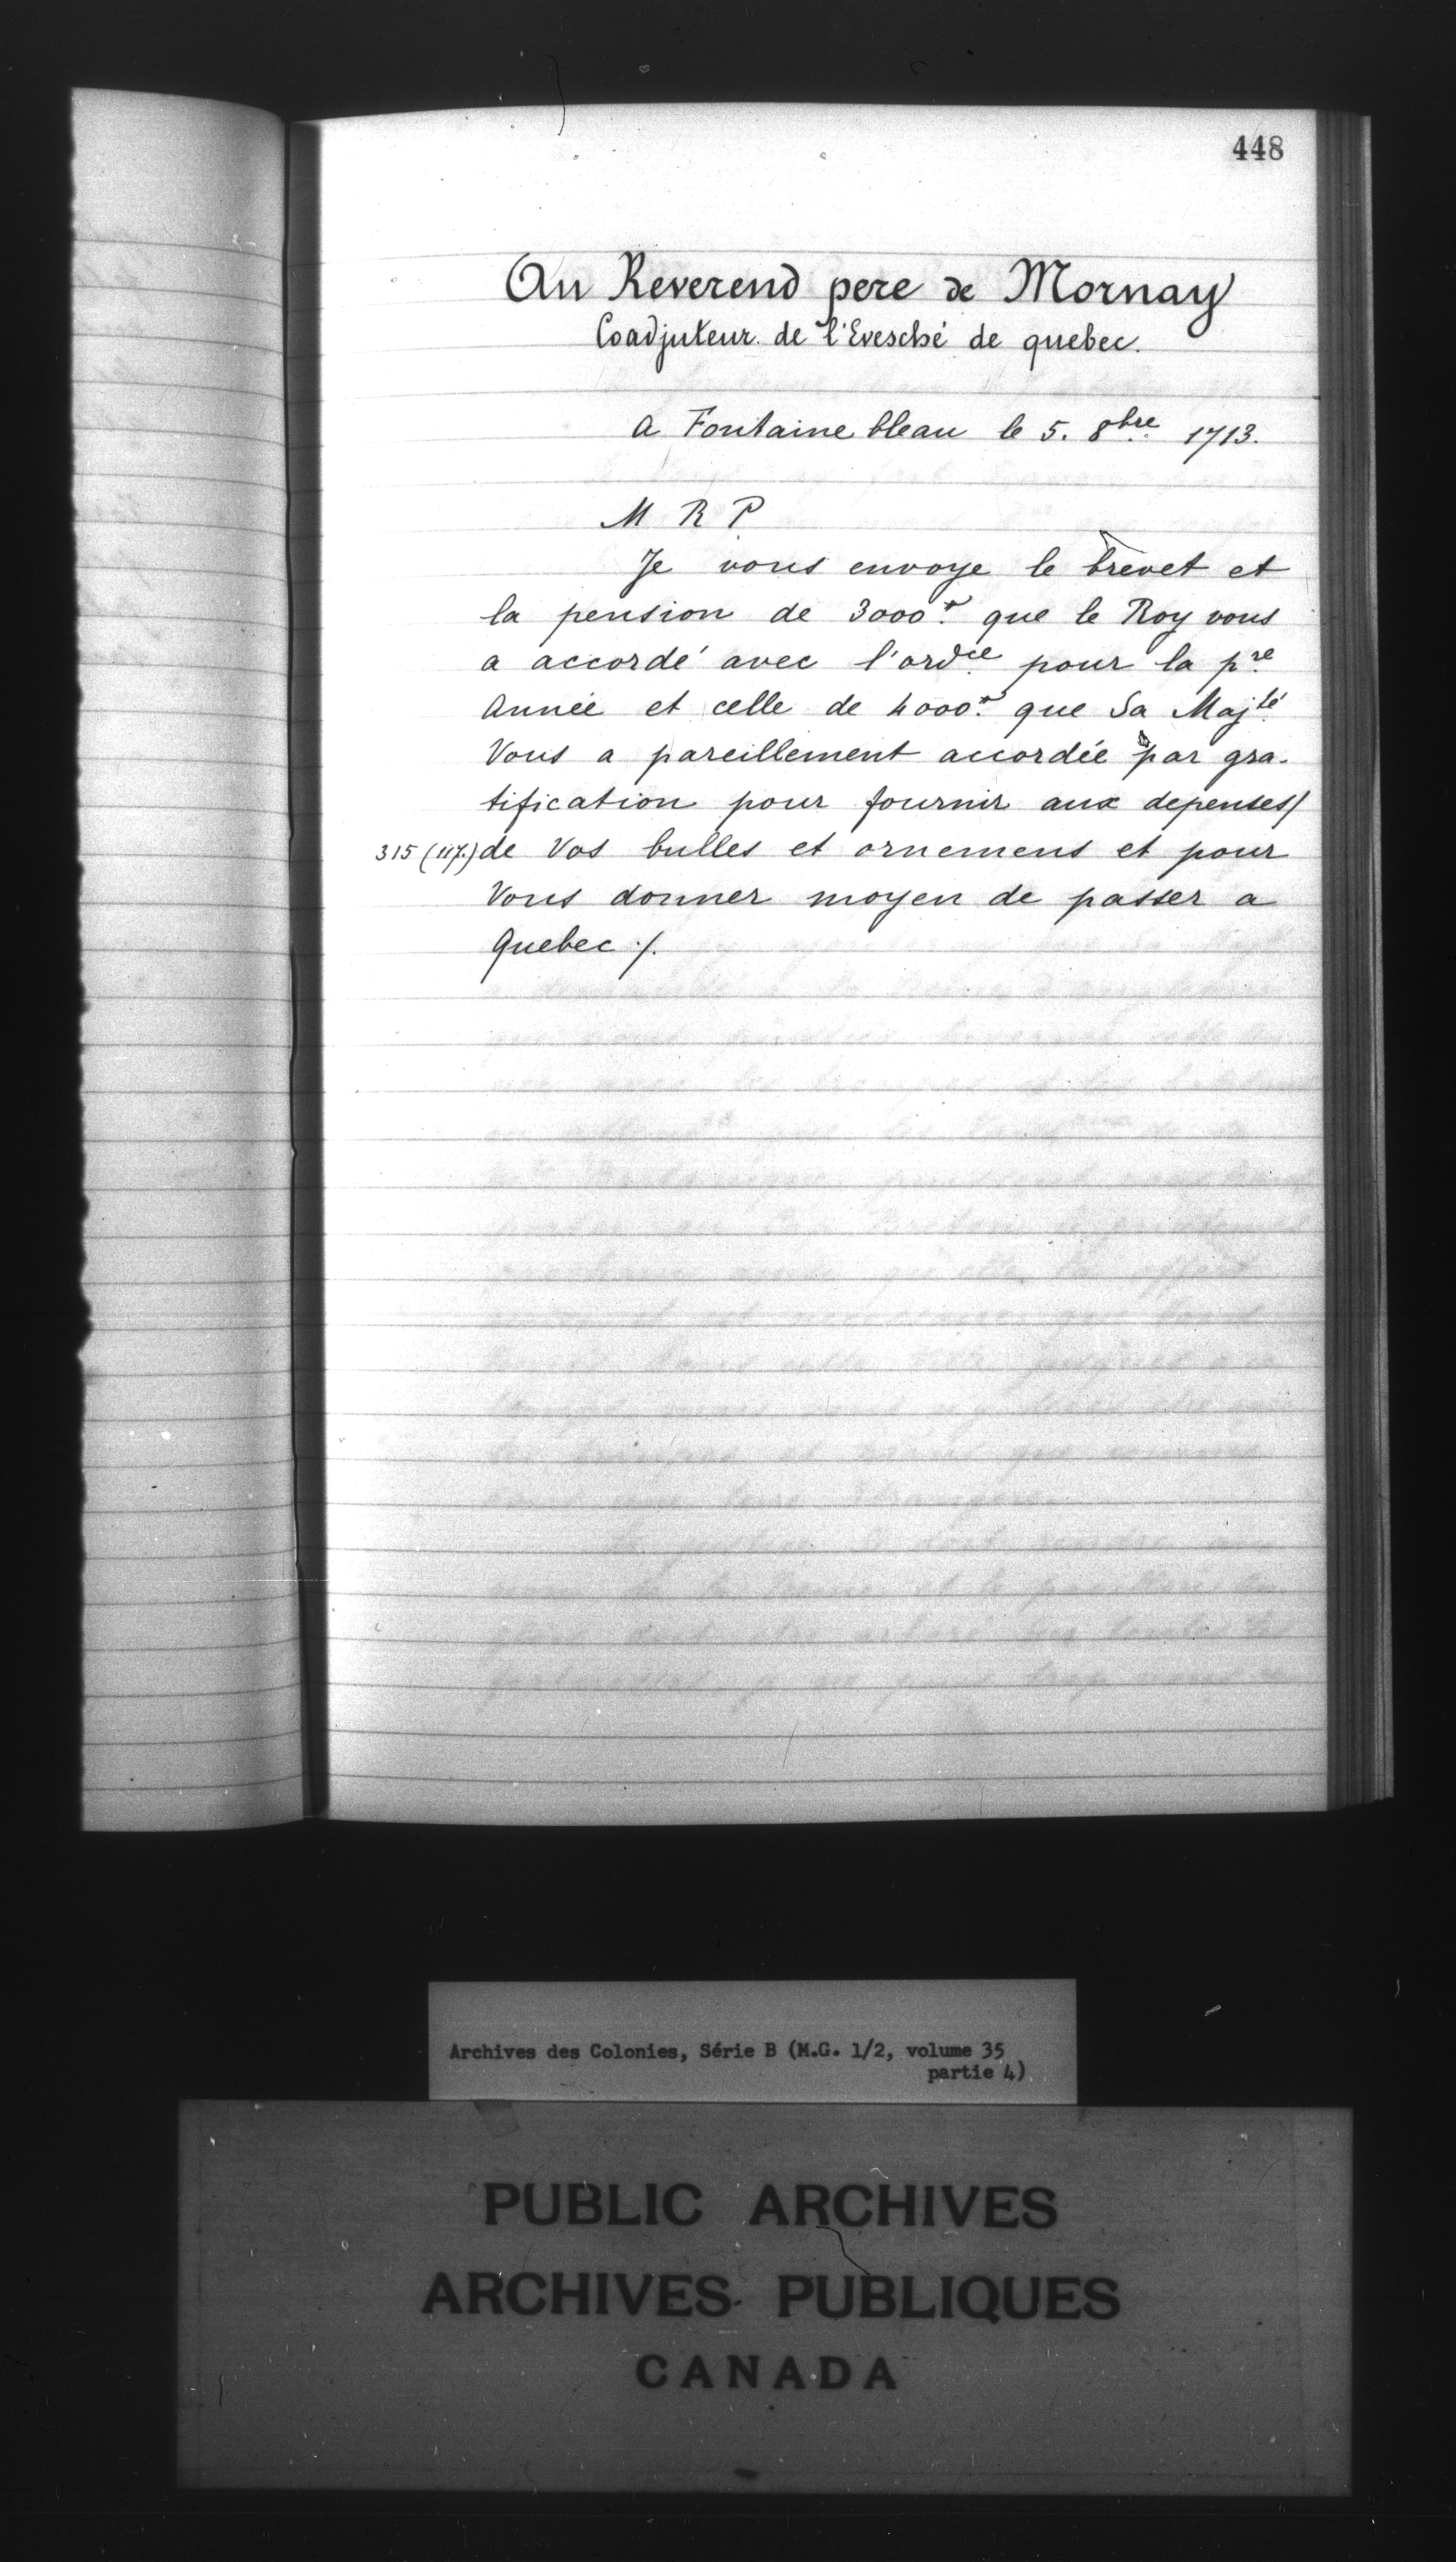 448
Au Reverend pere de Mornay
Coadjuteur de l'Evesché de quebec.
A Fontainebleau le 5. 8bre 1713.
M R P
Je vous envoye le brevet et
la pension de 3000# que le Roy vous
a accordé avec l'ordce pour la pre
Année et celle de 4000# que Sa Majté
Vous a pareillement accordée par gra-
tification pour fournir aux depenses/
315 (117.) de Vos bulles et ornemens et pour
Vous donner moyen de passer a
Quebec ./.
Archives des Colonies, Série B (M.G. 1/2, volume 35
partie 4)
PUBLIC ARCHIVES
ARCHIVES PUBLIQUES
CANADA